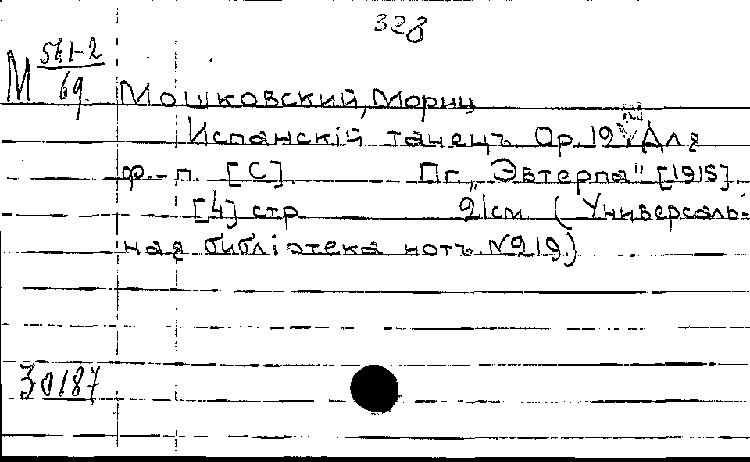 328
М 561-2
69
Мошковский, Мориц
Испанскій танецъ Op. 19 Для
ф.-п. [С]. Пг. „Эвтерпа" [1915].
[4] стр 21см (Универсаль-
ная библіотека нотъ. №219.)
30187